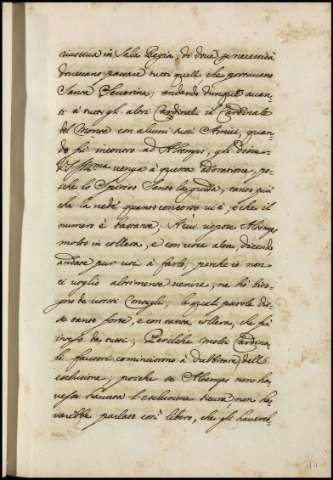 riusciua in Sala Regia, di doue p necessità
doueuano passare tutti quelli che portauano
Santa Seuerina; andando dunque auan-
ti à tutti gli altri Cardinali il Cardinale
del Monte con alcuni suoi Amici, quan-
do fù incontro ad Altemps, gli disse:
V. S. Ill.ma venga à questa adoratione, poi-
che lo Spirito Santo la guida; tanto più
che la vede quanto concorso vi è, e che il
numero è bastante; A cui rispose Altemps
molto in collera, e con voce alta, dicendo
andate pur voi à farlo, perche io non
ci voglio altrimente venire, ne hò biso-
gno de vostri Consegli; le quali parole dis-
se tanto forte, e con tanta collera, che fù
inteso da tutti; Perilche molti Cardina-
li fautori cominciorno à dubbitare dell'
esclusiua; poiche se Altemps non ha-
uesse hauuta l'esclusiua sicura non ha-
uerebbe parlato così libero, che gli hauereb-